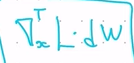 ∇ₓᵀ L · dW